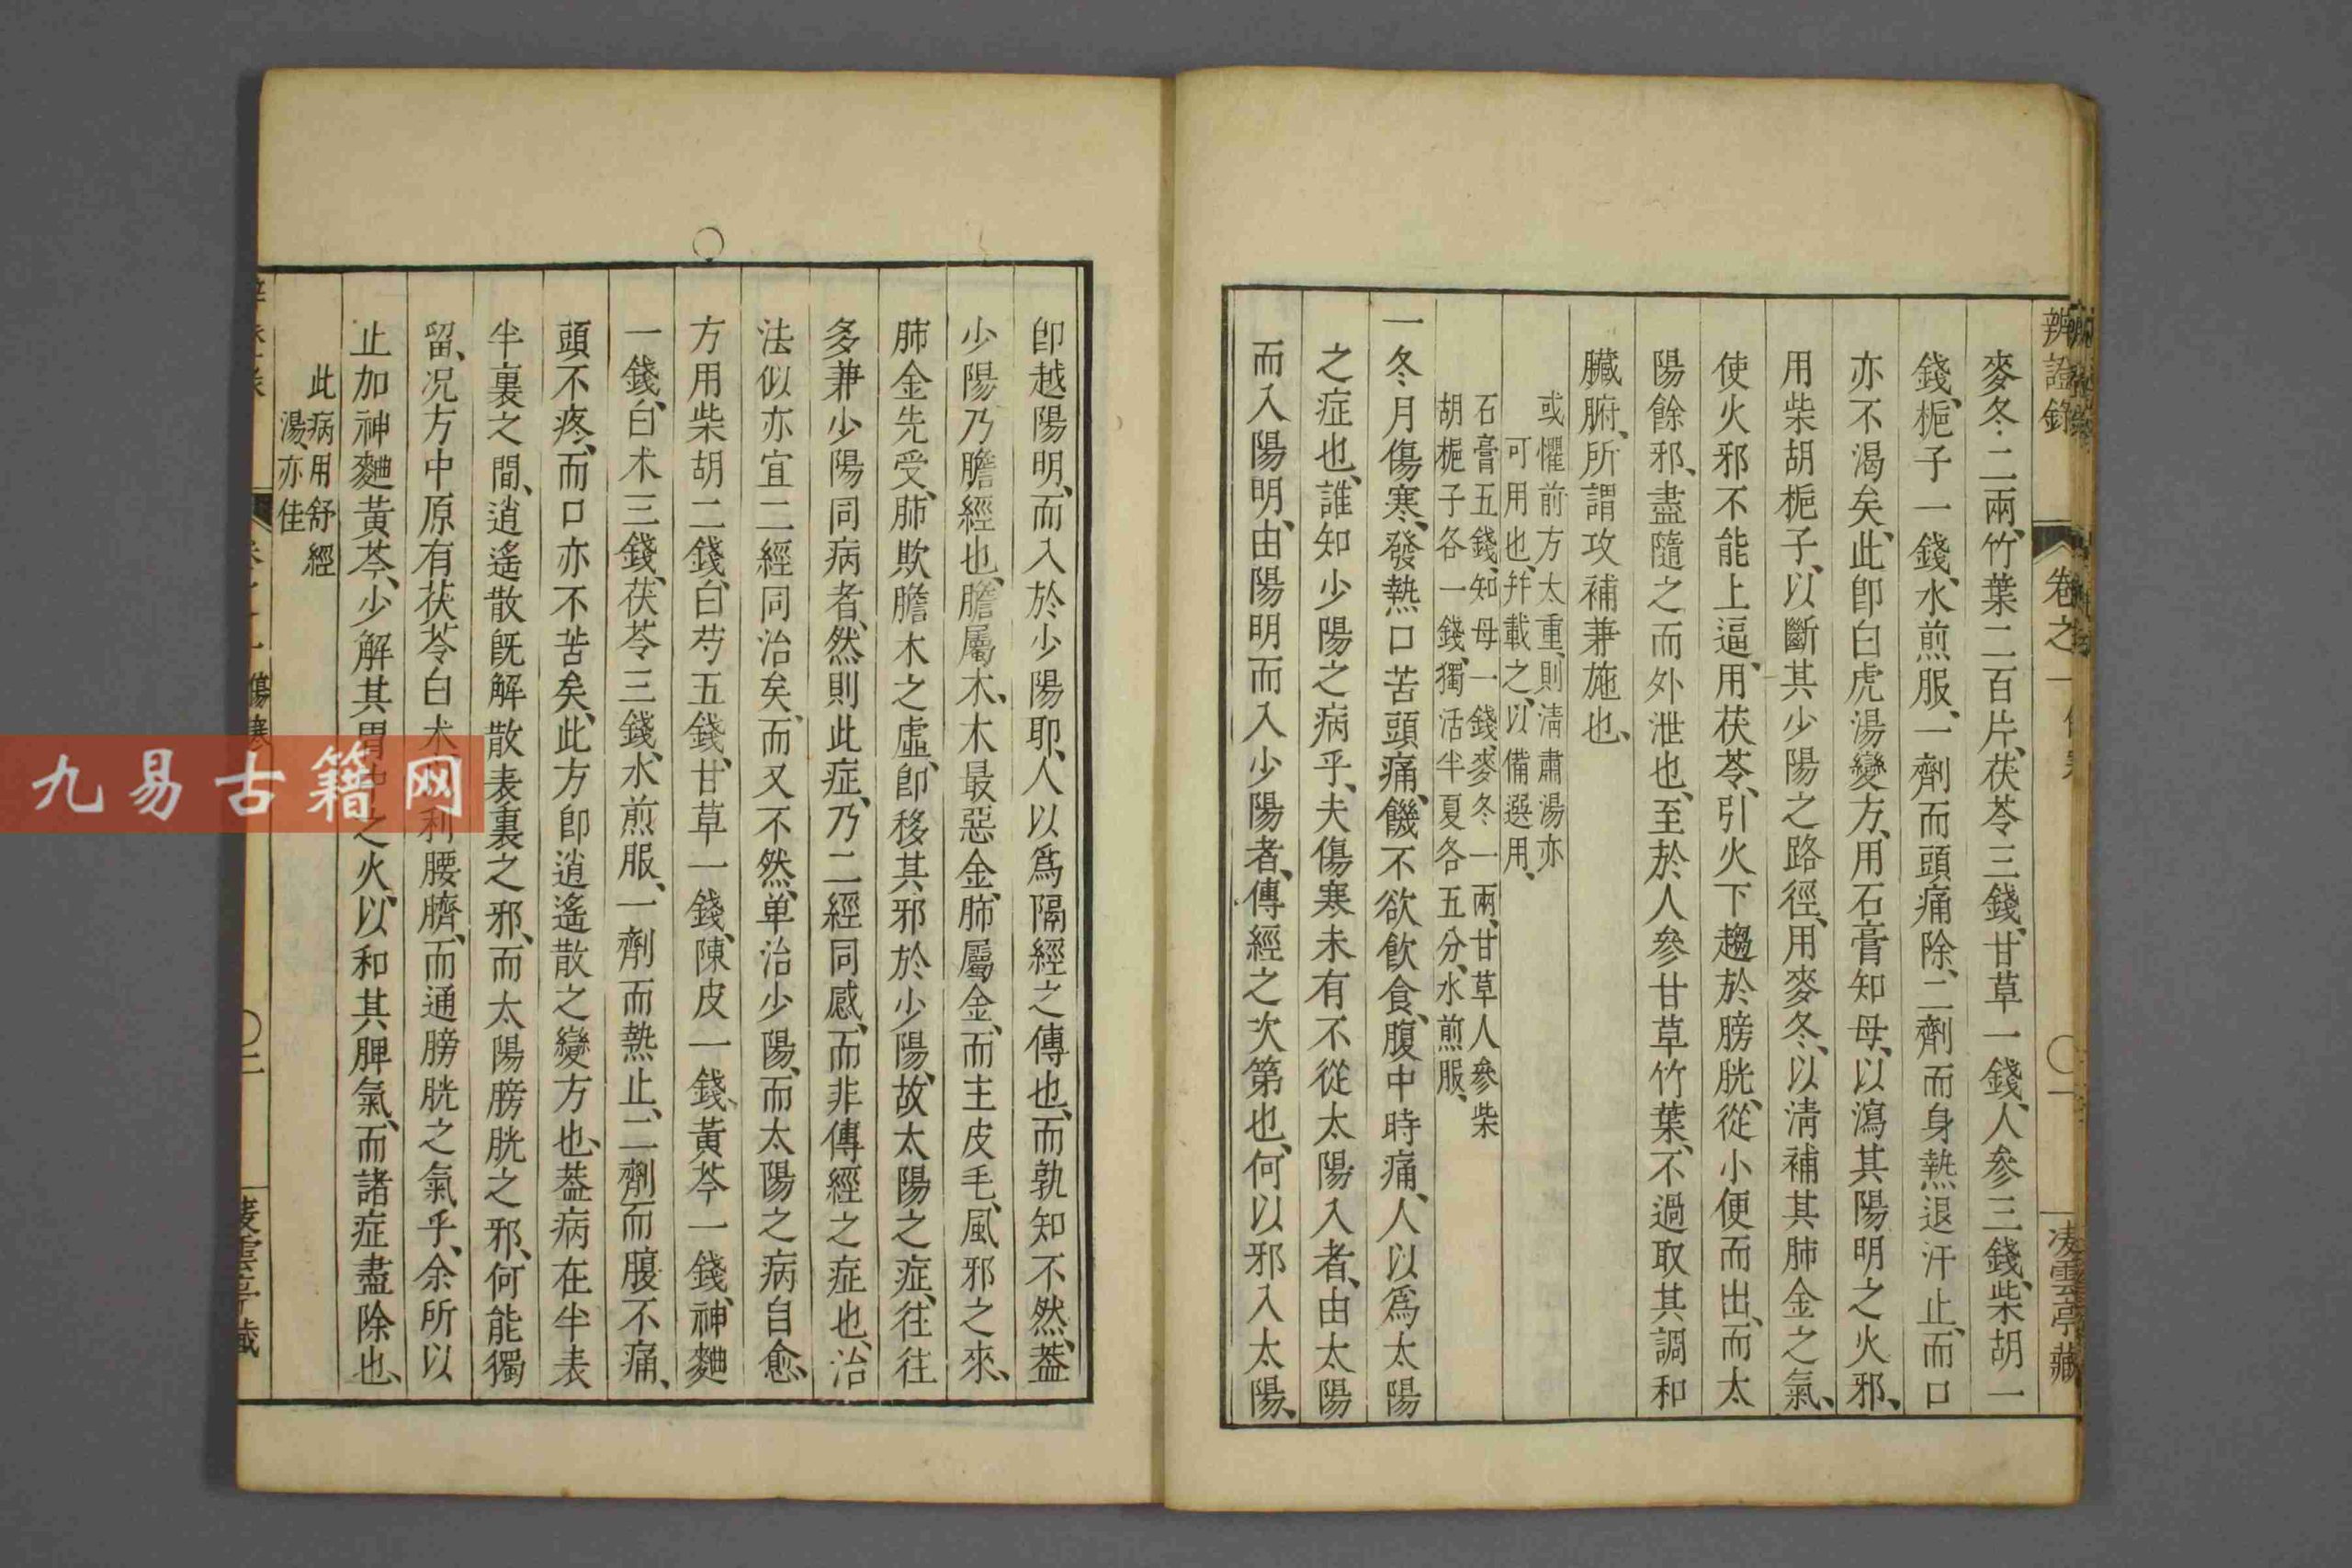 辨證錄
卷之一
〇一
凌雲亭藏
麥冬二兩、竹葉二百片、茯苓三錢、甘草一錢、人參三錢、柴胡一
錢、梔子一錢、水煎服、一劑而頭痛除、二劑而身熱退汗止、而口
亦不渴矣、此卽白虎湯變方、用石膏知母、以瀉其陽明之火邪、
用柴胡梔子、以斷其少陽之路徑、用麥冬、以淸補其肺金之氣、
使火邪不能上逼、用茯苓、引火下趨於膀胱、從小便而出、而太
陽餘邪、盡隨之而外泄也、至於人參甘草竹葉、不過取其調和
臟腑、所謂攻補兼施也、
或懼前方太重、則淸肅湯亦
可用也、幷載之、以備選用、
石膏五錢、知母一錢、麥冬一兩、甘草人參柴
胡梔子各一錢、獨活半夏各五分、水煎服、
一冬月傷寒、發熱口苦頭痛、饑不欲飲食、腹中時痛、人以爲太陽
之症也、誰知少陽之病乎、夫傷寒未有不從太陽入者、由太陽
而入陽明、由陽明而入少陽者、傳經之次第也、何以邪入太陽、
卽越陽明、而入於少陽耶、人以爲隔經之傳也、而孰知不然、蓋
少陽乃膽經也、膽屬木、木最惡金、肺屬金、而主皮毛、風邪之來、
肺金先受、肺欺膽木之虛、卽移其邪於少陽、故太陽之症、往往
多兼少陽同病者、然則此症、乃二經同感、而非傳經之症也、治
法似亦宜二經同治矣、而又不然、單治少陽、而太陽之病自愈、
方用柴胡二錢、白芍五錢、甘草一錢、陳皮一錢、黃芩一錢、神麯
一錢、白朮三錢、茯苓三錢、水煎服、一劑而熱止、二劑而腹不痛、
頭不疼、而口亦不苦矣、此方卽逍遙散之變方也、蓋病在半表
半裏之間、逍遙散旣解散表裏之邪、而太陽膀胱之邪、何能獨
留、況方中原有茯苓白朮利腰臍、而通膀胱之氣乎、余所以
止加神麯黃芩、少解其胃之火、以和其脾氣、而諸症盡除也、
此病用舒經
湯、亦佳
傷寒
〇二
九易古籍网